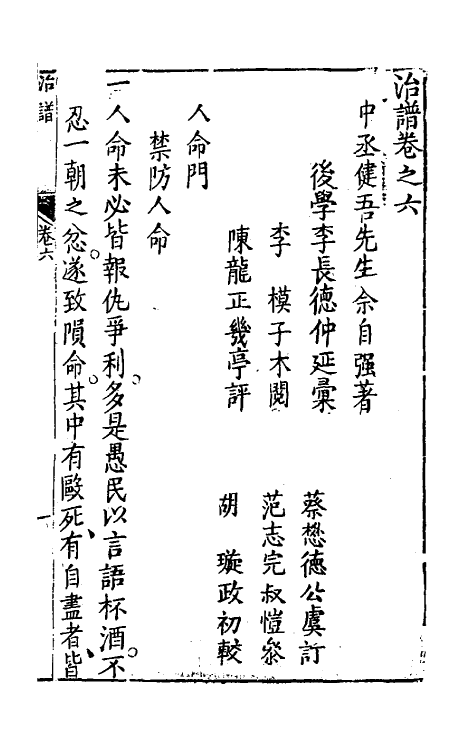 治譜卷之六
中丞健吾先生佘自强著
後學李長德仲延彙
蔡懋德公虞訂
李 模子木閱
范志完叔愷叅
陳龍正幾亭評
胡 璇政初較
人命門
禁防人命
一人命未必皆報仇爭利多是愚民以言語杯酒不
忍一朝之忿遂致隕命其中有毆死有自盡者皆
治譜
卷六
一